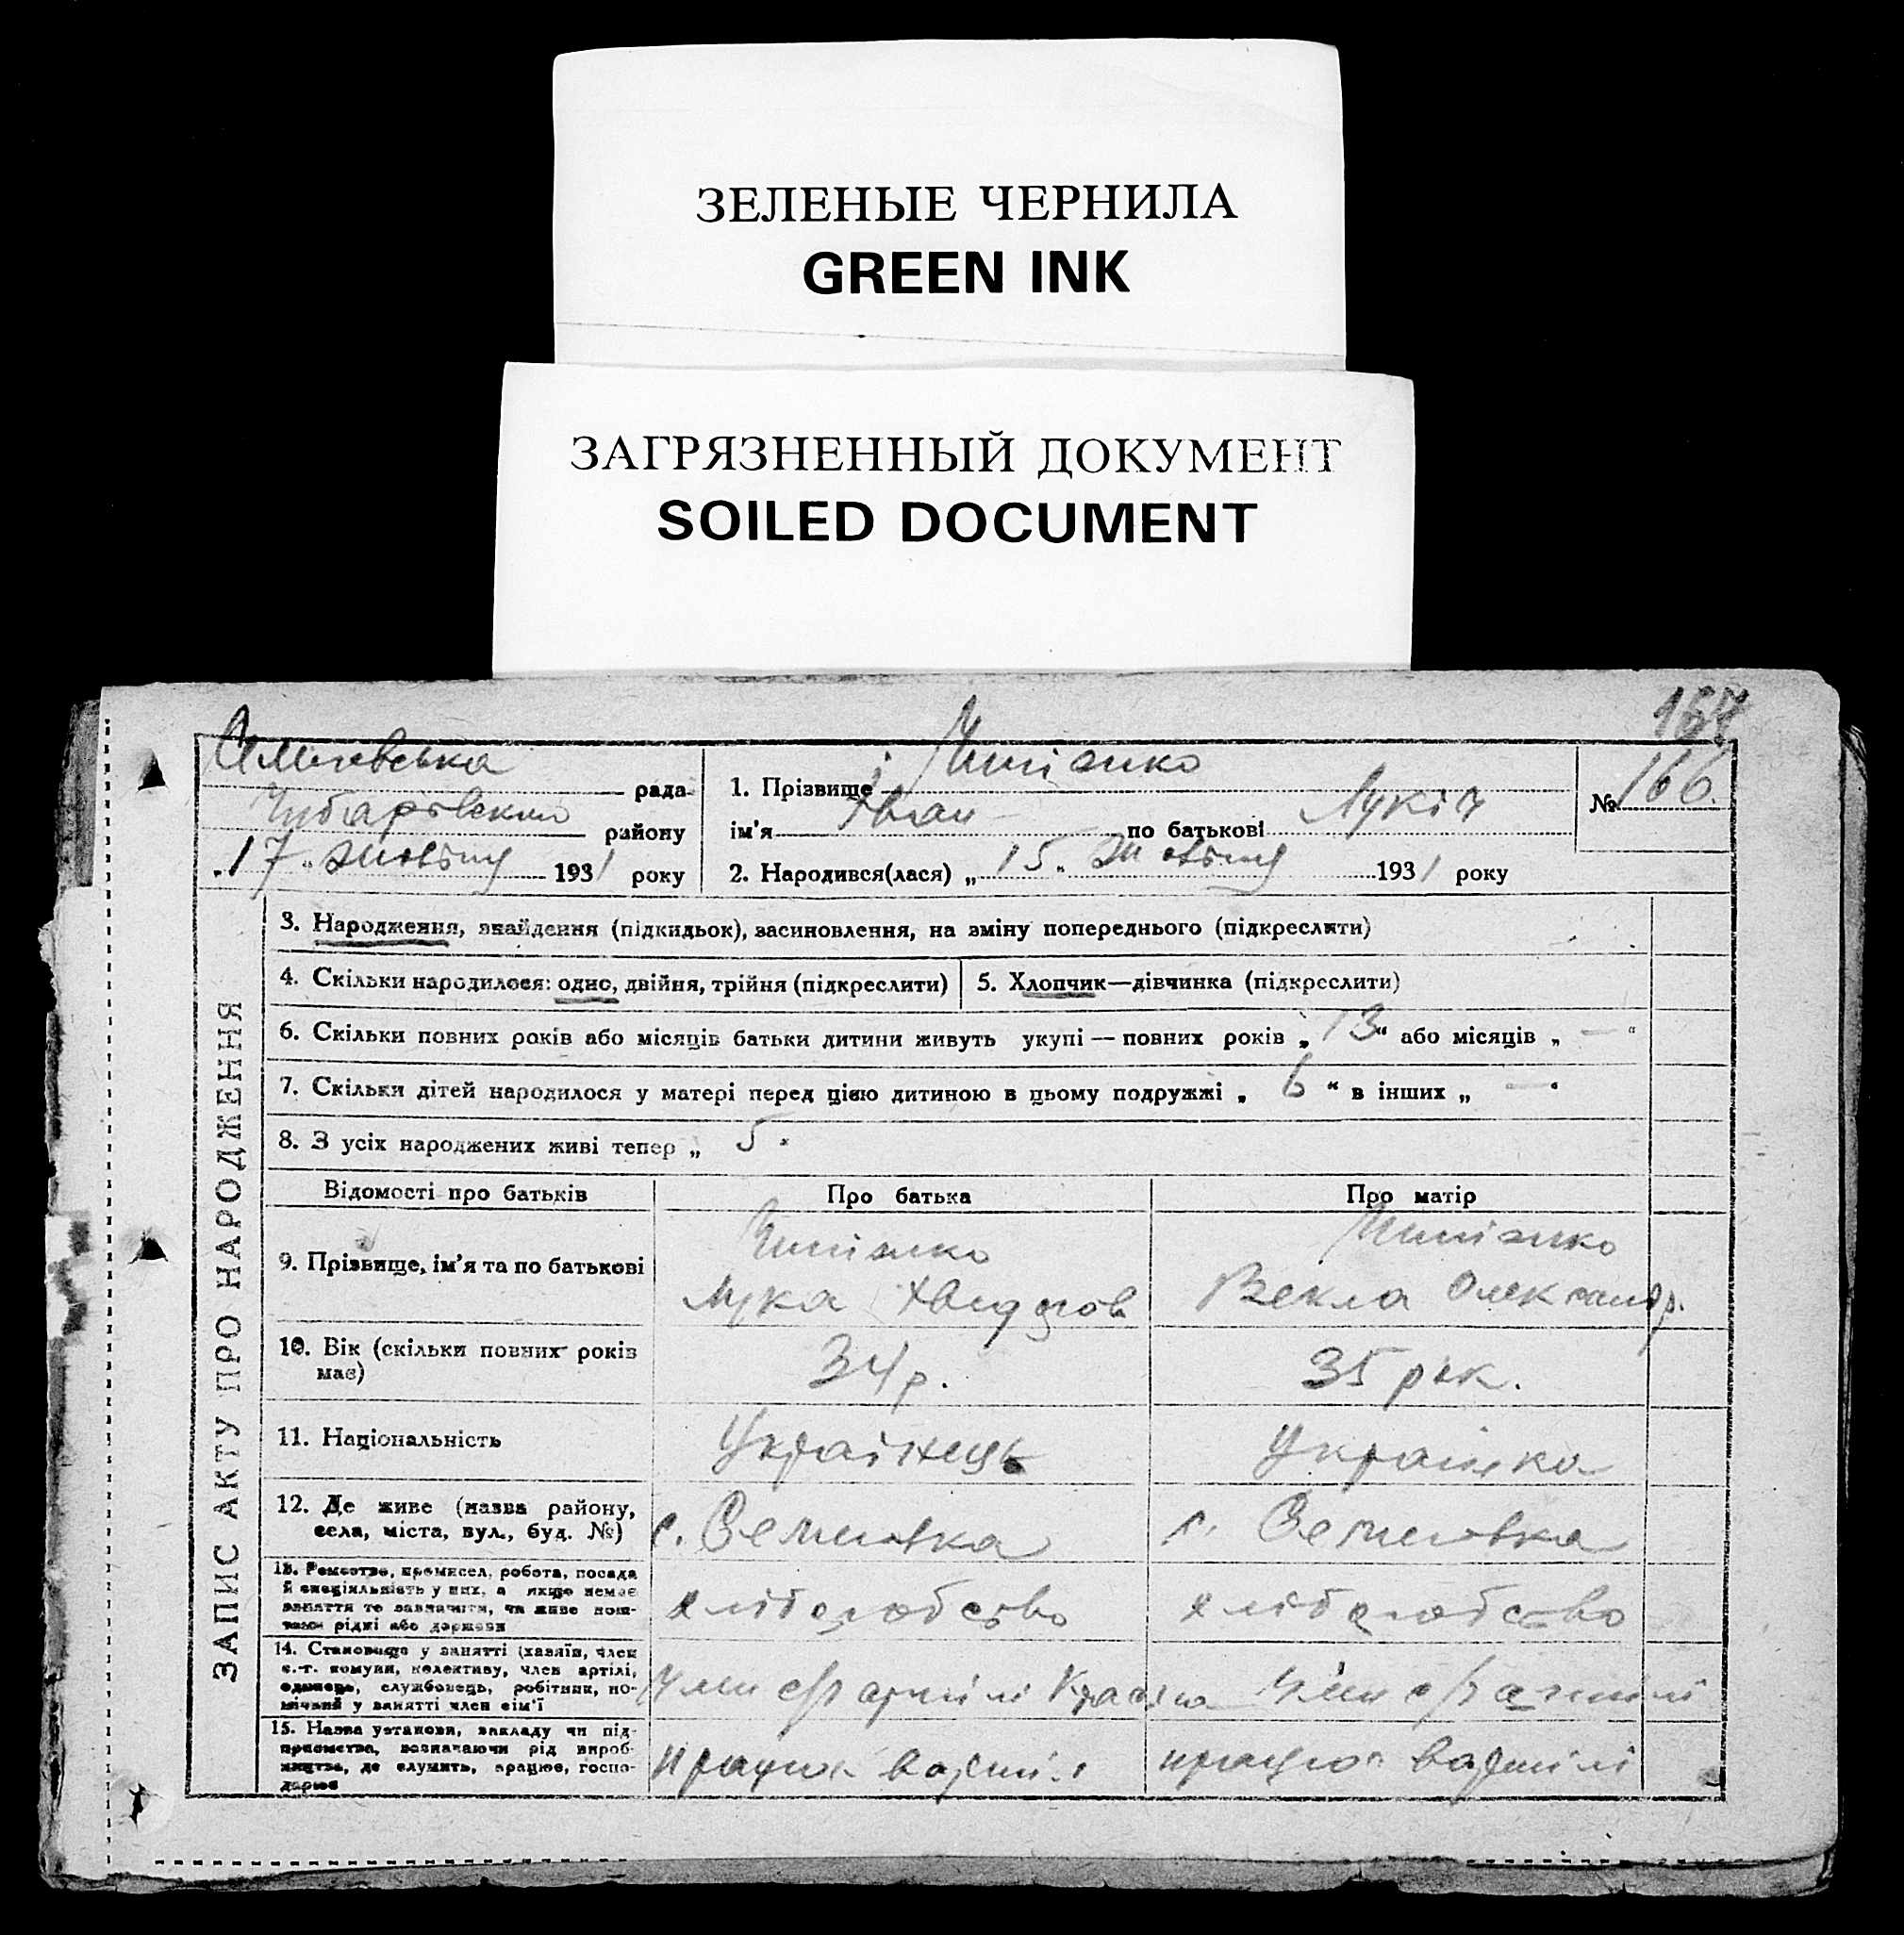 ЗЕЛЕНЫЕ ЧЕРНИЛА
GREEN INK
ЗАГРЯЗНЕННЫЙ ДОКУМЕНТ
SOILED DOCUMENT
рада
району
17 " жовтня 1931 року
1. Прізвище
ім'я Іван по батькові Лукич
№ 166.
2. Народився(лася) „ 15 " жовтня 1931 року
ЗАПИС АКТУ ПРО НАРОДЖЕННЯ
3. Народження, знайдення (підкидьок), засиновлення, на зміну попереднього (підкреслити)
4. Скільки народилося: одно, двійня, трійня (підкреслити)
5. Хлопчик—дівчинка (підкреслити)
6. Скільки повних років або місяців батьки дитини живуть укупі — повних років „ 13 “ або місяців „ — “
7. Скільки дітей народилося у матері перед цією дитиною в цьому подружжі „ 6 “ в інших „ — “
8. З усіх народжених живі тепер „ 5.
Відомості про батьків
Про батька
Про матір
9. Прізвище, ім'я та по батькові
Лука
Векла Олександр.
10. Вік (скільки повних років
має)
34 р.
35 рок.
11. Національність
Українець
Українка
12. Де живе (назва району,
села, міста, вул., буд. №)
с. Семенівка
с. Семенівка
13. Ремество, промисел, робота, посада
й спеціяльність у них, а якщо немає
заняття то зазначити, чи живе кош-
тами рідні або держави
хліборобство
хліборобство
14. Становище у занятті (хазяїн, член
с.-г. комуни, колективу, член артілі,
одинець, службовець, робітник, по-
мічний у занятті член сім'ї
15. Назва установи, закладу чи під-
приємства, зазначаючи рід вироб-
ництва, де служить, працює, госпо-
дарює